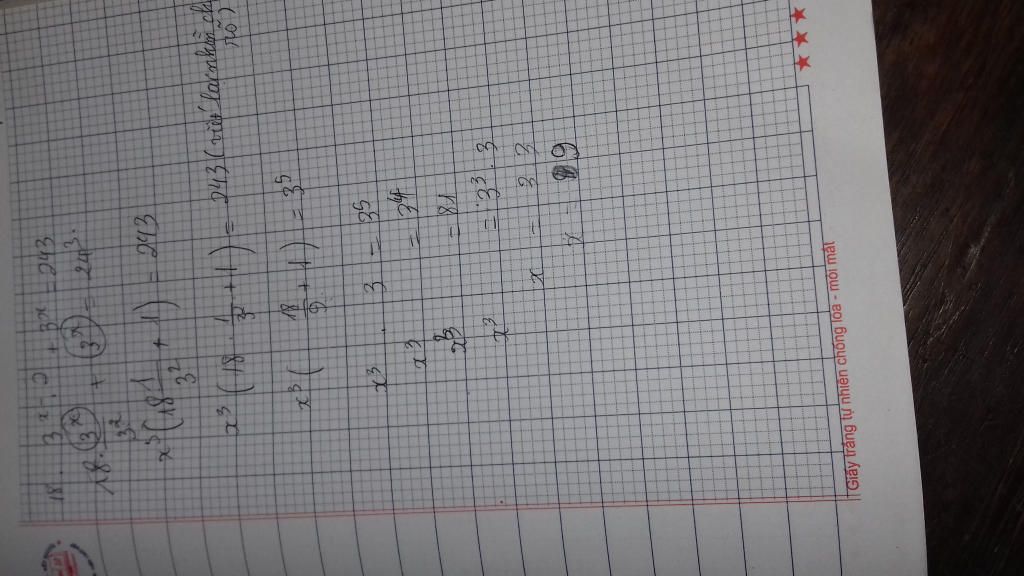 18 . 3^x-2 + 3^x = 243
18 . 3^x/3^2 + 3^x = 243.
x^3 (18 1/3^2 + 1) = 243
x^3 (18 . 1/3^2 + 1) = 243 (viết
x^3 ( 18/9 + 1 ) = 3^5
x^3 . 3 = 3^5
x^3 = 3^4
x^3 = 81
x^3 = 3^3 . 3
x = 3 3
x = 9
Giấy trắng tự nhiên chống lóa - mỏi mắt